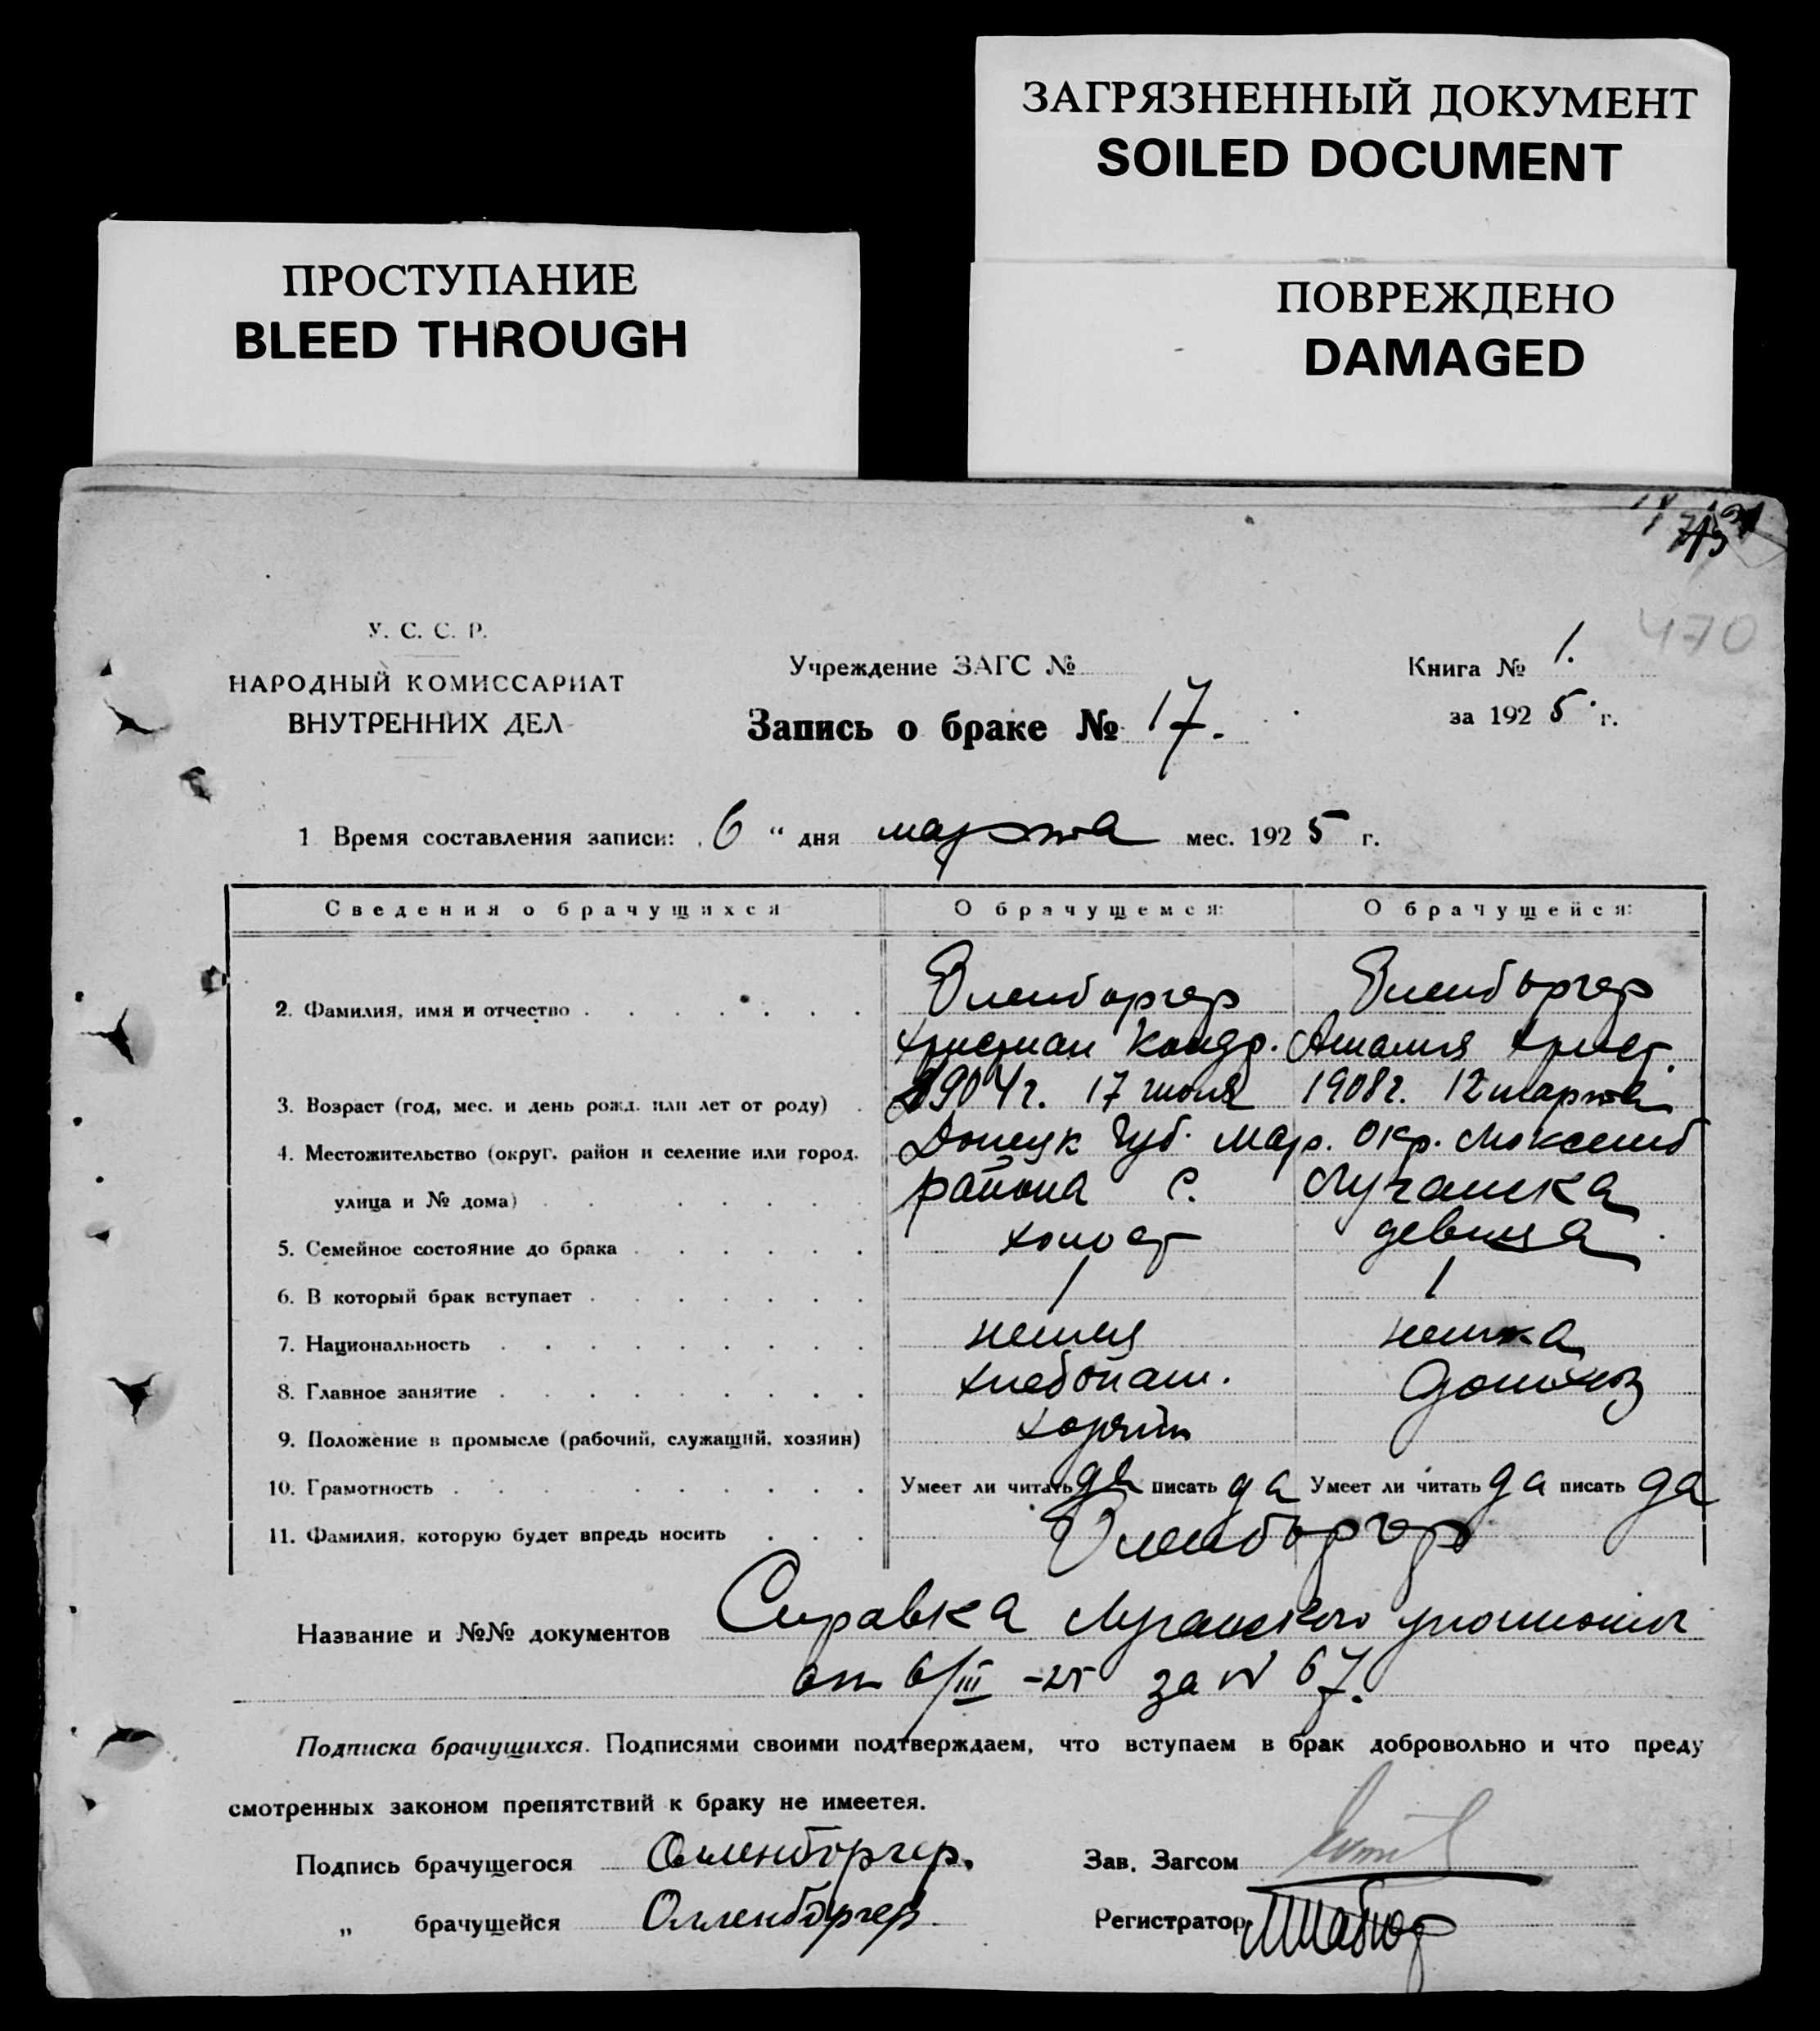 ЗАГРЯЗНЕННЫЙ ДОКУМЕНТ
SOILED DOCUMENT
ПРОСТУПАНИЕ
BLEED THROUGH
ПОВРЕЖДЕНО
DAMAGED
470
У. С. С. Р.
НАРОДНЫЙ КОМИССАРИАТ
ВНУТРЕННИХ ДЕЛ
Учреждение ЗАГС №
Запись о браке № 17.
Книга № 1.
за 1925 г.
1 Время составления записи: 6 " дня марта мес. 1925 г.
Сведения о брачущихся О брачущемся: О брачущейся:
2. Фамилия, имя и отчество Оленборгер Оленборгер
Христиан Кондр. Амалия Христ.
3. Возраст (год, мес. и день рожд. или лет от роду) 1904 г. 17 июля 1908 г. 12 марта
4. Местожительство (округ. район и селение или город. Донецк губ. Мар. Окр.
улица и № дома) района с. Луганска
5. Семейное состояние до брака холост девица
6. В который брак вступает 1 1
7. Национальность немец немка
8. Главное занятие хлебопаш. домхоз
9. Положение в промысле (рабочий, служащий, хозяин) хозяин
10. Грамотность Умеет ли читать да писать да Умеет ли читать да писать да
11. Фамилия, которую будет впредь носить Оленборгер
Название и №№ документов Справка Луганского
от 6/III -25 за N 67.
Подписка брачущихся. Подписями своими подтверждаем, что вступаем в брак добровольно и что преду
смотренных законом препятствий к браку не имеетея.
Подпись брачущегося Олленборгер. Зав. Загсом
„ брачущейся Олленборгер Регистратор